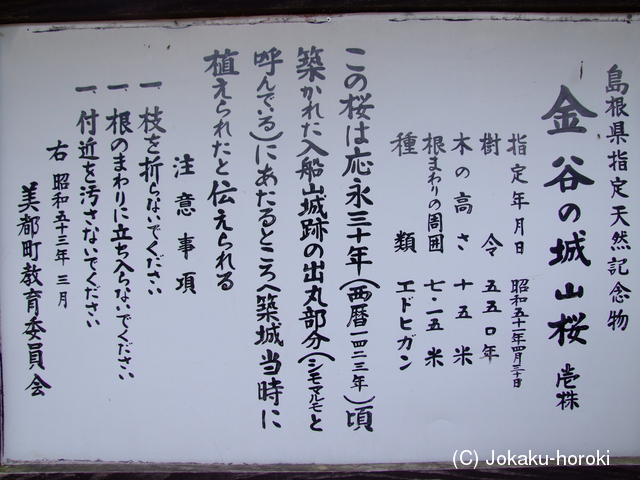 島根県指定天然記念物
金谷の城山桜 壱株
指定年月日 昭和五十一年四月三十日
樹令 五五〇年
木の高さ 十五米
根まわりの周囲 七・一五米
種類 エドヒガン
この桜は応永三十年(西暦一四二三年)頃
築かれた入船山城跡の出丸部分(シモマルモと
呼んでいる)にあたるところへ築城当時に
植えられたと伝えられる
注意事項
一、枝を折らないでください
一、根のまわりに立ち入らないでください
一、付近を汚さないでください
右 昭和五十三年三月
美都町教育委員会
(C) Jokaku-horoki